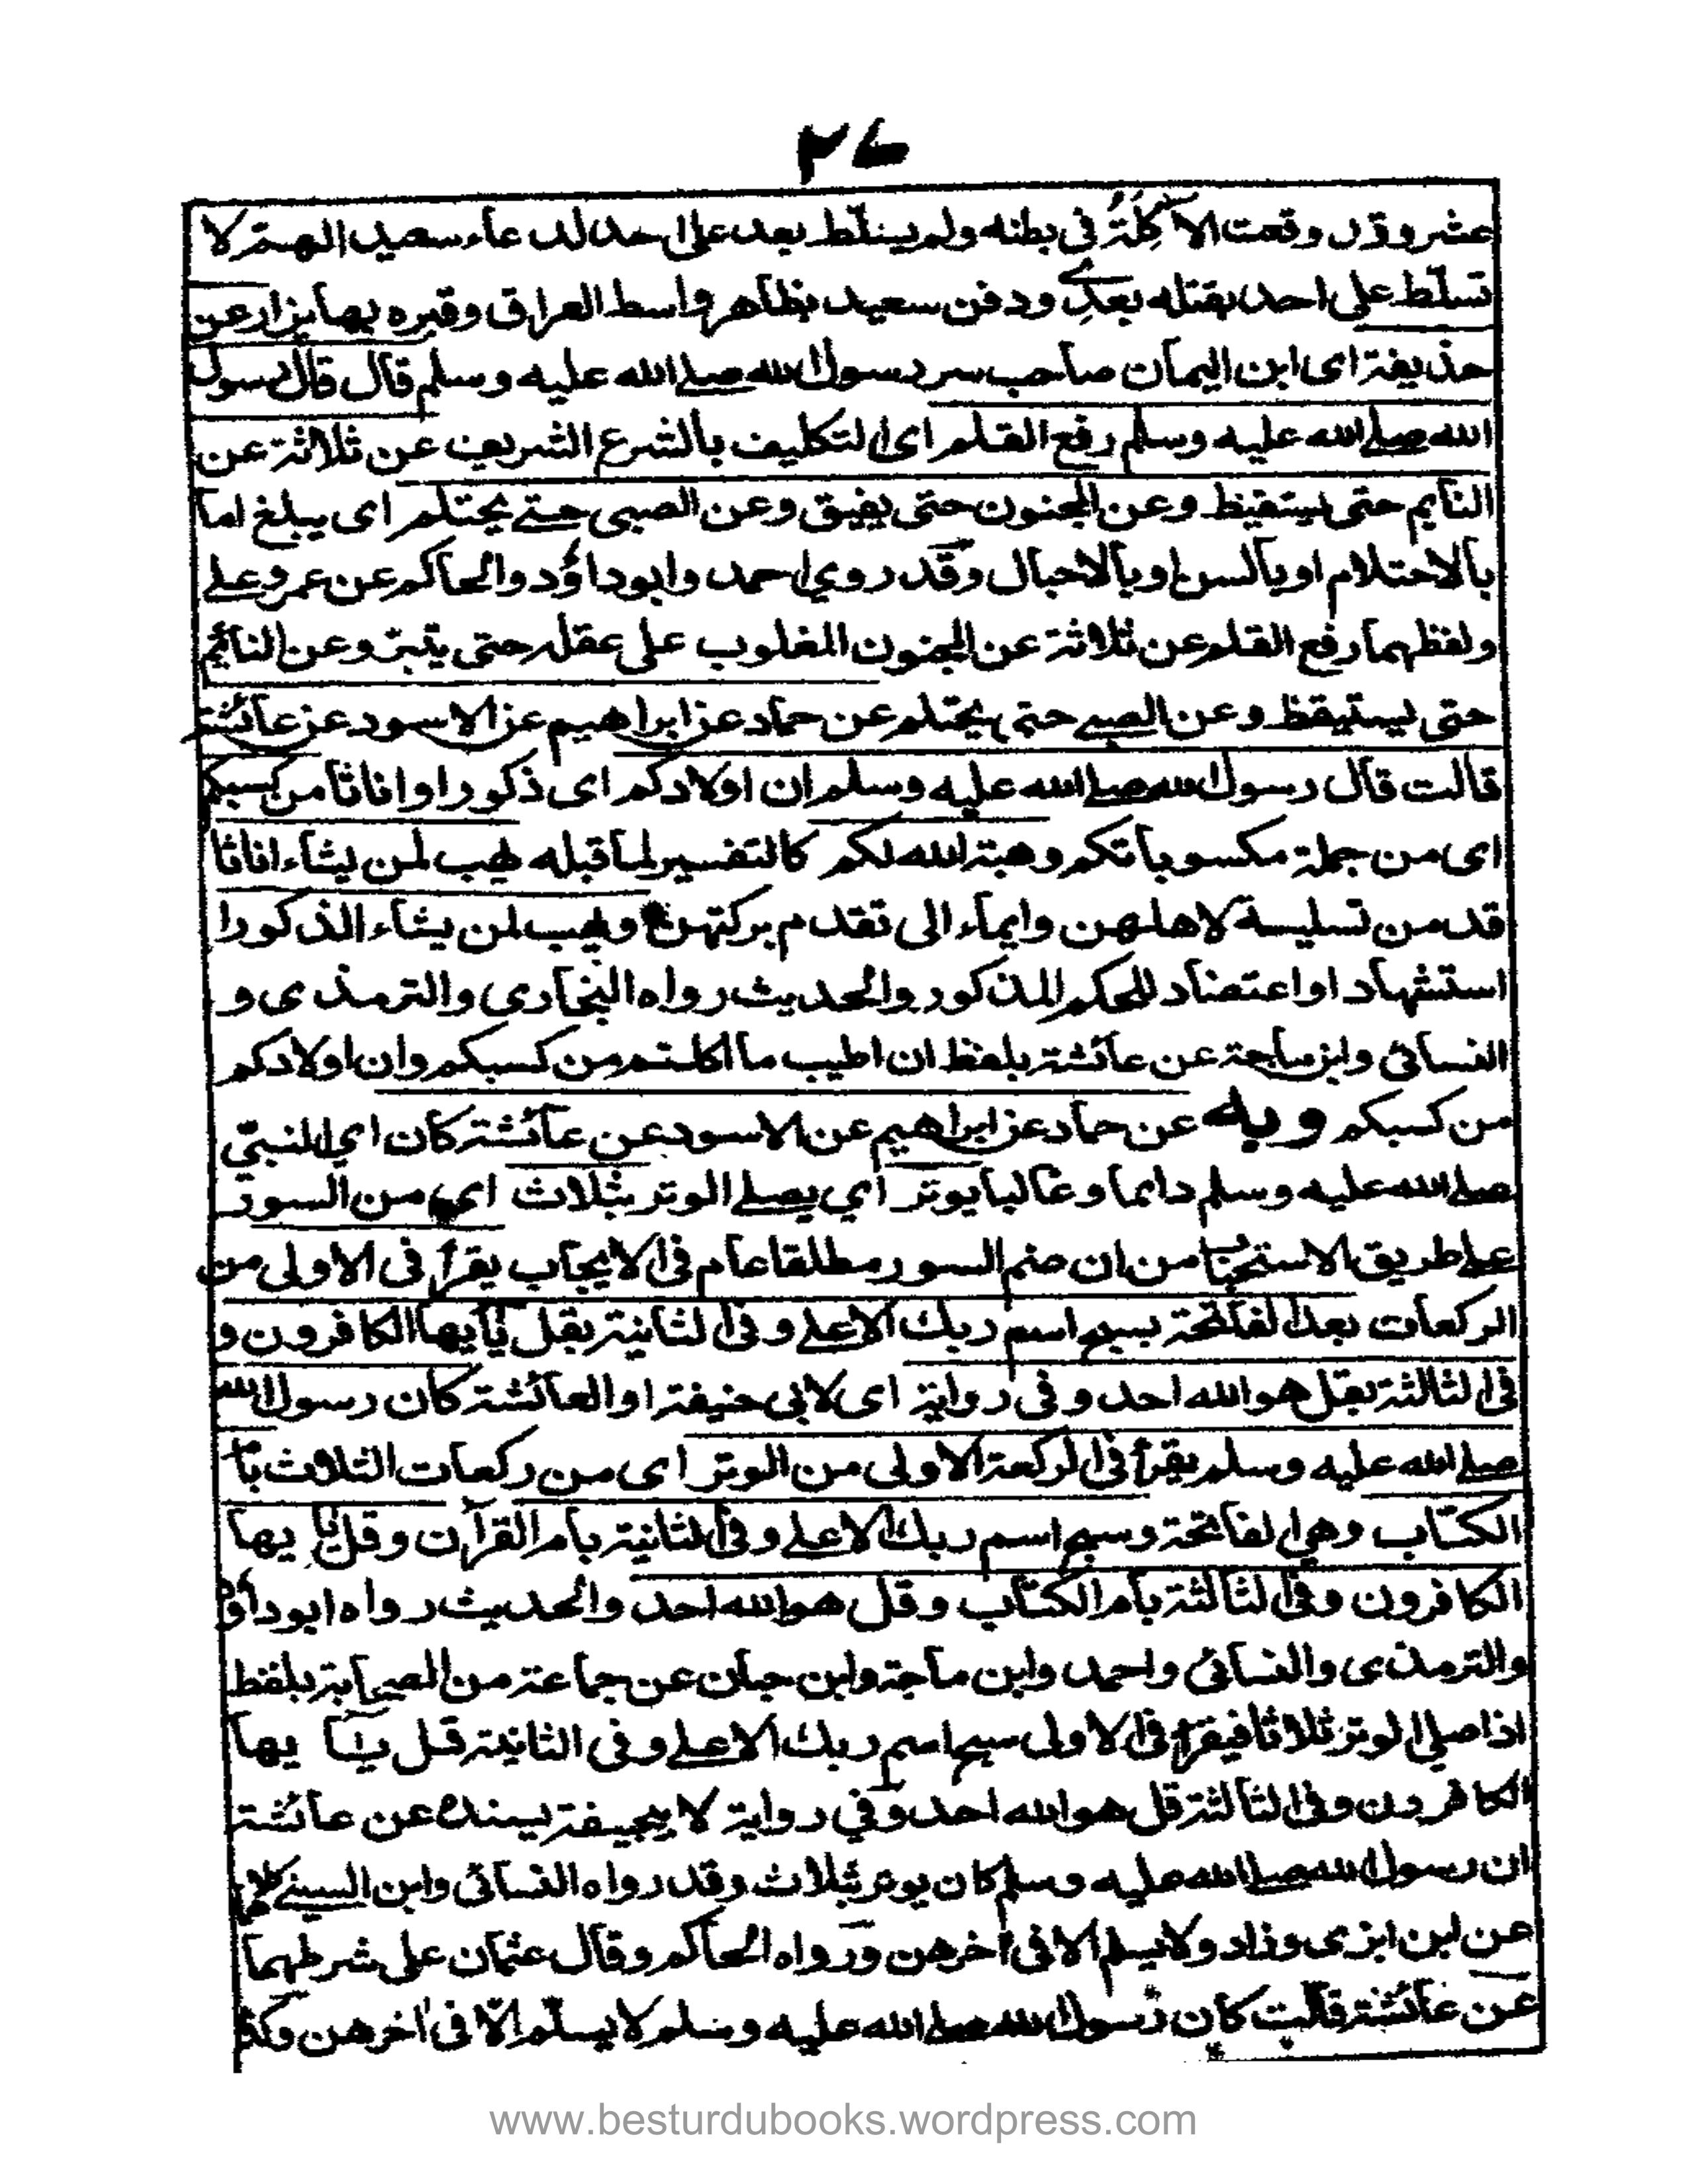 ٢٧
عشرو قيل وقعت الاٰكِلَةُ فى بطنه ولم يسلّط بعد على احد لدعاء سعيد اللهم لا
تسلّط على احد يقتله بعدى ودفن سعيد بظاهر واسط العراق وقبره بها يزار عن
حذيفة اى ابن اليمان صاحب سر رسول الله صلے الله عليه وسلم قال قال رسول
الله صلے الله عليه وسلم رفع القلم اى التكليف بالشرع الشريف عن ثلاثة عن
النايم حتى يستقيظ وعن المجنون حتى يفيق وعن الصبى حتے يحتلم اى يبلغ اما
بالاحتلام او بالسن او بالاحبال وقد روى احمد وابو داؤد والحاكم عن عمر وعلے
ولفظهما رفع القلم عن ثلاثة عن المجنون المغلوب على عقله حتى يتبرّ وعن النائم
حتى يستيقظ وعن الصبے حتى يحتلم عن حماد عن ابراهيم عن الاسود عن عائشة
قالت قال رسول الله صلے الله عليه وسلم ان اولادكم اى ذكورا او اناثا من كسبكم
اى من جملة مكسوباتكم وهبة الله لكم كالتفسير لما قبله يهب لمن يشاء اناثا
قدمن تسلية لاهلهن وايماء الى تقدم بركتهن ويهب لمن يشاء الذكورا
استشهاد او اعتضاد للحكم المذكور والحديث رواه البخارى والترمذى و
النسائى وابن ماجة عن عائشة بلفظ ان اطيب ما اكلتم من كسبكم وان اولادكم
من كسبكم وبه عن حماد عن ابراهيم عن الاسود عن عائشة كان اى النبىّ
صلے الله عليه وسلم دايما وغالبا يوتر اى يصلے الوتر بثلاث اى من السور
علے طريق الاستحبا من ان ضم السور مطلقا عام فى الايجاب يقرأ فى الاولى من
الركعات بعد الفاتحة بسبح اسم ربك الاعلے وفى الثانية بقل يٰأيها الكافرون و
فى الثالثة بقل هو الله احد وفى رواية اى لابى حنيفة او العائشة كان رسول الله
صلے الله عليه وسلم يقرأ فى الركعة الاولى من الوتر اى من ركعات الثلاث بأم
الكتاب وهى الفاتحة وسبح اسم ربك الاعلے وفى الثانية بام القرآن وقل يٰا يها
الكافرون وفى الثالثة بام الكتاب وقل هو الله احد والحديث رواه ابو داؤد
والترمذى والنسائى واحمد وابن ماجة وابن حبان عن جماعة من الصحابة بلفظ
اذا صلى الوتر ثلاثا فيقرأ فى الاولى سبح اسم ربك الاعلے وفى الثانية قل يٰآ يها
الكافرون وفى الثالثة قل هو الله احد وفي رواية لا بيحيفة بسنده عن عائشة
ان رسول الله صلے الله عليه وسلم كان يوتر بثلاث وقد رواه النسائى وابن السنے
عن ابن ابزى وزاد ولا يسلم الا فى اخرهن ورواه الحاكم وقال عثمان على شرطهما
عن عائشة قالت كان رسول الله صلے الله عليه وسلم لا يسلّم الّا فى اٰخرهن وكذ
www.besturdubooks.wordpress.com